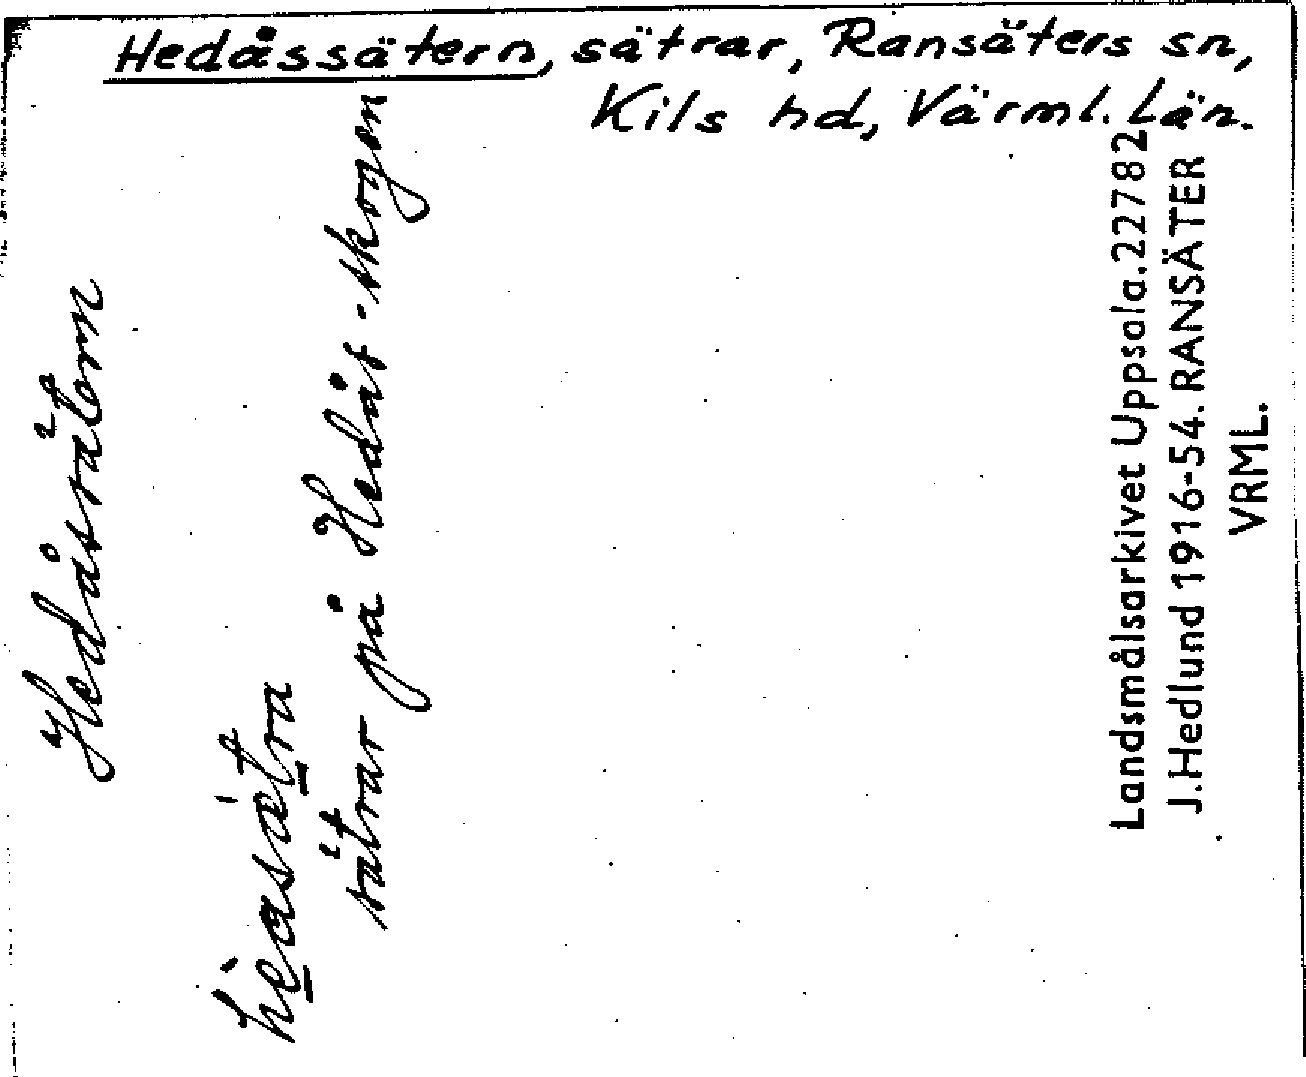 Hedåssätern, sätrar, Ransäters sn,
Kils hd, Värml. Län.
Hedåssätern
heasätra
sätrar på Hedås-skogen
Landsmålsarkivet Uppsala. 22782
J.Hedlund 1916-54. RANSÄTER
VRML.